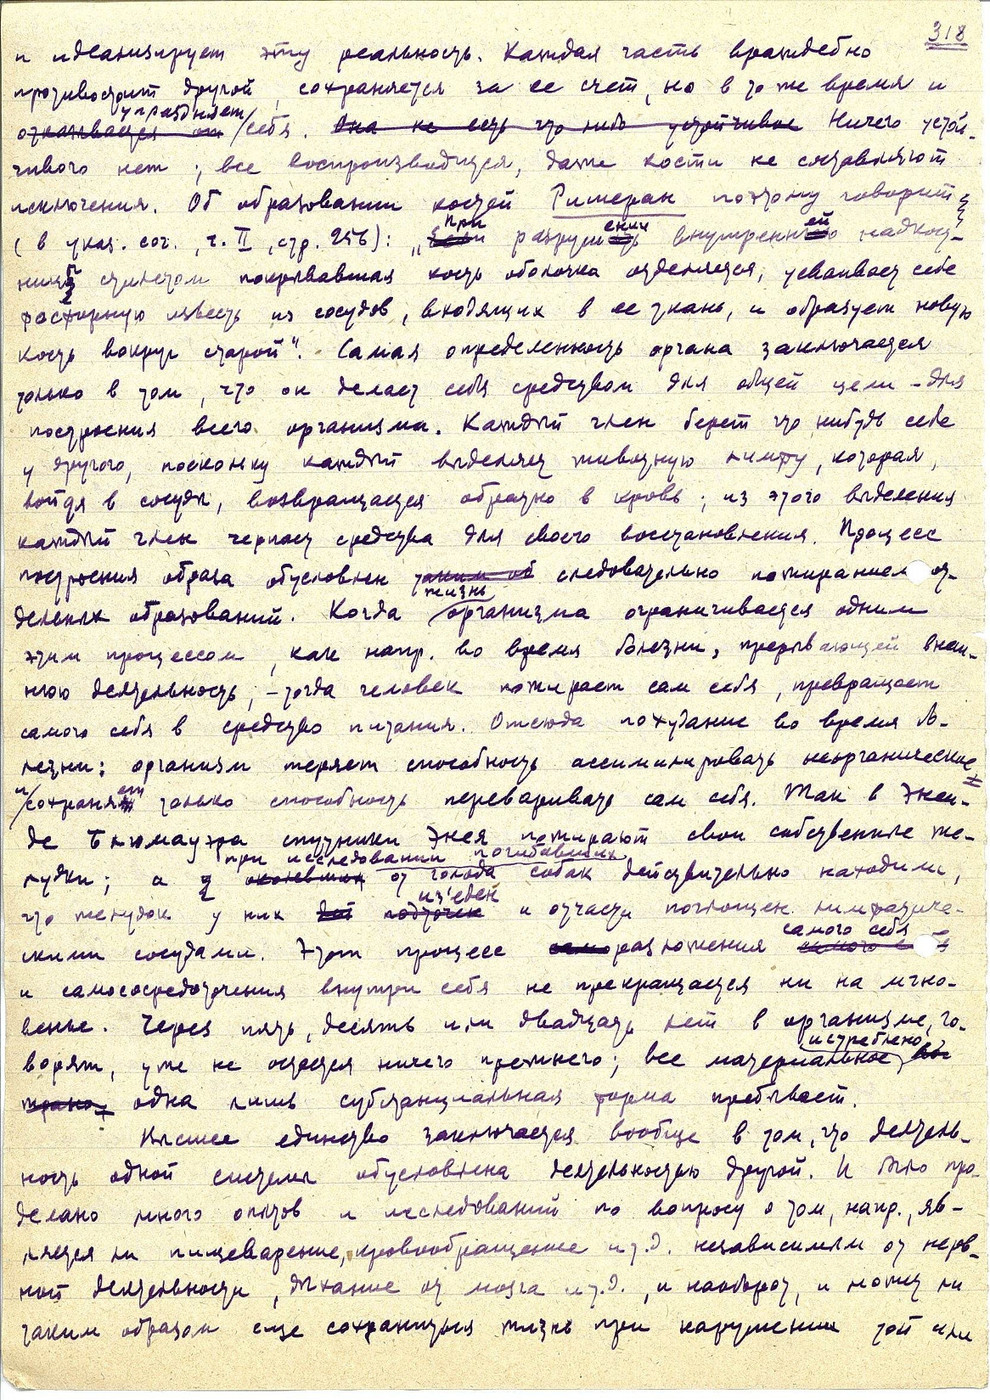 318
и идеализирует эту реальность. Каждая часть враждебно
противостоит другой, сохраняется за ее счет, но в то же время и
упраздняет
отказывается от себя. Она не есть что либо устойчивое Ничего устой-
чивого нет; все воспроизводится, даже кости не составляют
исключения. Об образовании костей Рихеран поэтому говорит
(в указ. соч., т. II, стр. 256): „При разрушении внутренней надкост-
ницы стилетом покрывавшая кость оболочка отделяется, усваивает себе
фосфорную известь из сосудов, входящих в ее ткань, и образует новую
кость вокруг старой". Самая определенность органа заключается
только в том, что он делает себя средством для общей цели – для
построения всего организма. Каждый член берет что нибудь себе
у другого, поскольку каждый выделяет животную лимфу, которая,
войдя в сосуды, возвращается обратно в кровь; из этого выделения
каждый член черпает средства для своего восстановления. Процесс
построения образа обусловлен таким об следовательно пожиранием от-
жизнь
дельных образований. Когда организма ограничивается одним
этим процессом, как напр. во время болезни, прерывающей внеш-
нюю деятельность, – тогда человек пожирает сам себя, превращает
самого себя в средство питания. Отсюда похудание во время бо-
лезни: организм теряет способность ассимилировать неорганическое
и сохраняет только способность переваривать сам себя. Так в Энеи-
де Блюмауэра спутники Энея пожирают свои собственные же-
при исследовании погибавших
лудки; а у околевших от голода собак действительно находили,
из'еден
что желудок у них был подточен и отчасти поглощен лимфатиче-
самого себя
скими сосудами. Этот процесс само разложения самого себя
и самососредоточения внутри себя не прекращается ни на мгно-
венье. Через пять, десять или двадцать лет в организме, го-
истреблено,
ворят, уже не остается ничего прежнего; все материальное,
одна лишь субстанциальная форма пребывает.
Высшее единство заключается вообще в том, что деятель-
ность одной системы обусловлена деятельностью другой. И было про-
делано много опытов и исследований по вопросу о том, напр., яв-
ляется ли пищеварение, кровообращение и т.д. независимым от нерв-
ной деятельности, дыхание от мозга и т.д., и наоборот, и может ли
таким образом еще сохраниться жизнь при нарушении той или